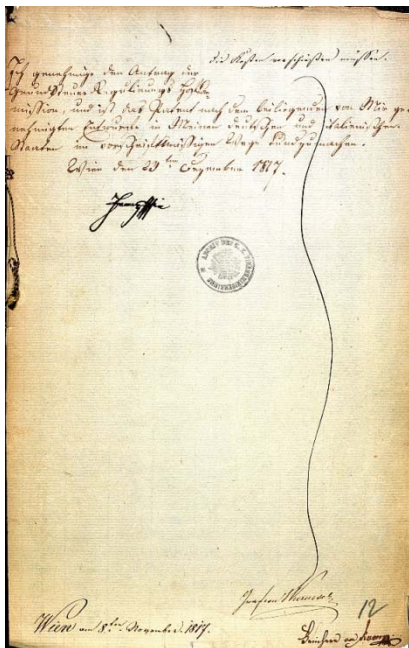 die Kosten vorschießen müssen.
Ich genehmige den Antrag der
Grundsteuer Regulierungs Hofkom¬
mission, und ist das Patent nach dem beiliegenden von Mir ge¬
nehmigten Entwurfe in Meinen deutschen und italienischen
Staaten im vorschriftmässigen Wege kundzumachen.
Wien den 23ten Dezember 1817.
Franz
Wien am 8ten November 1817.
12